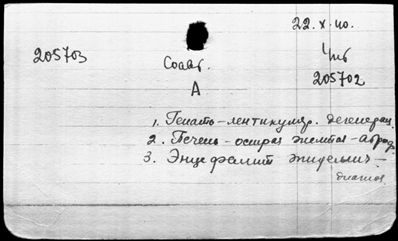 22.X.40.
205703 Соавт. Чит
205702
А
1. Гепато-лентикуляр. дегенерац.
2. Печень - острая желтая - атроф.
3. Энцефалит эпидемич. -
диагноз